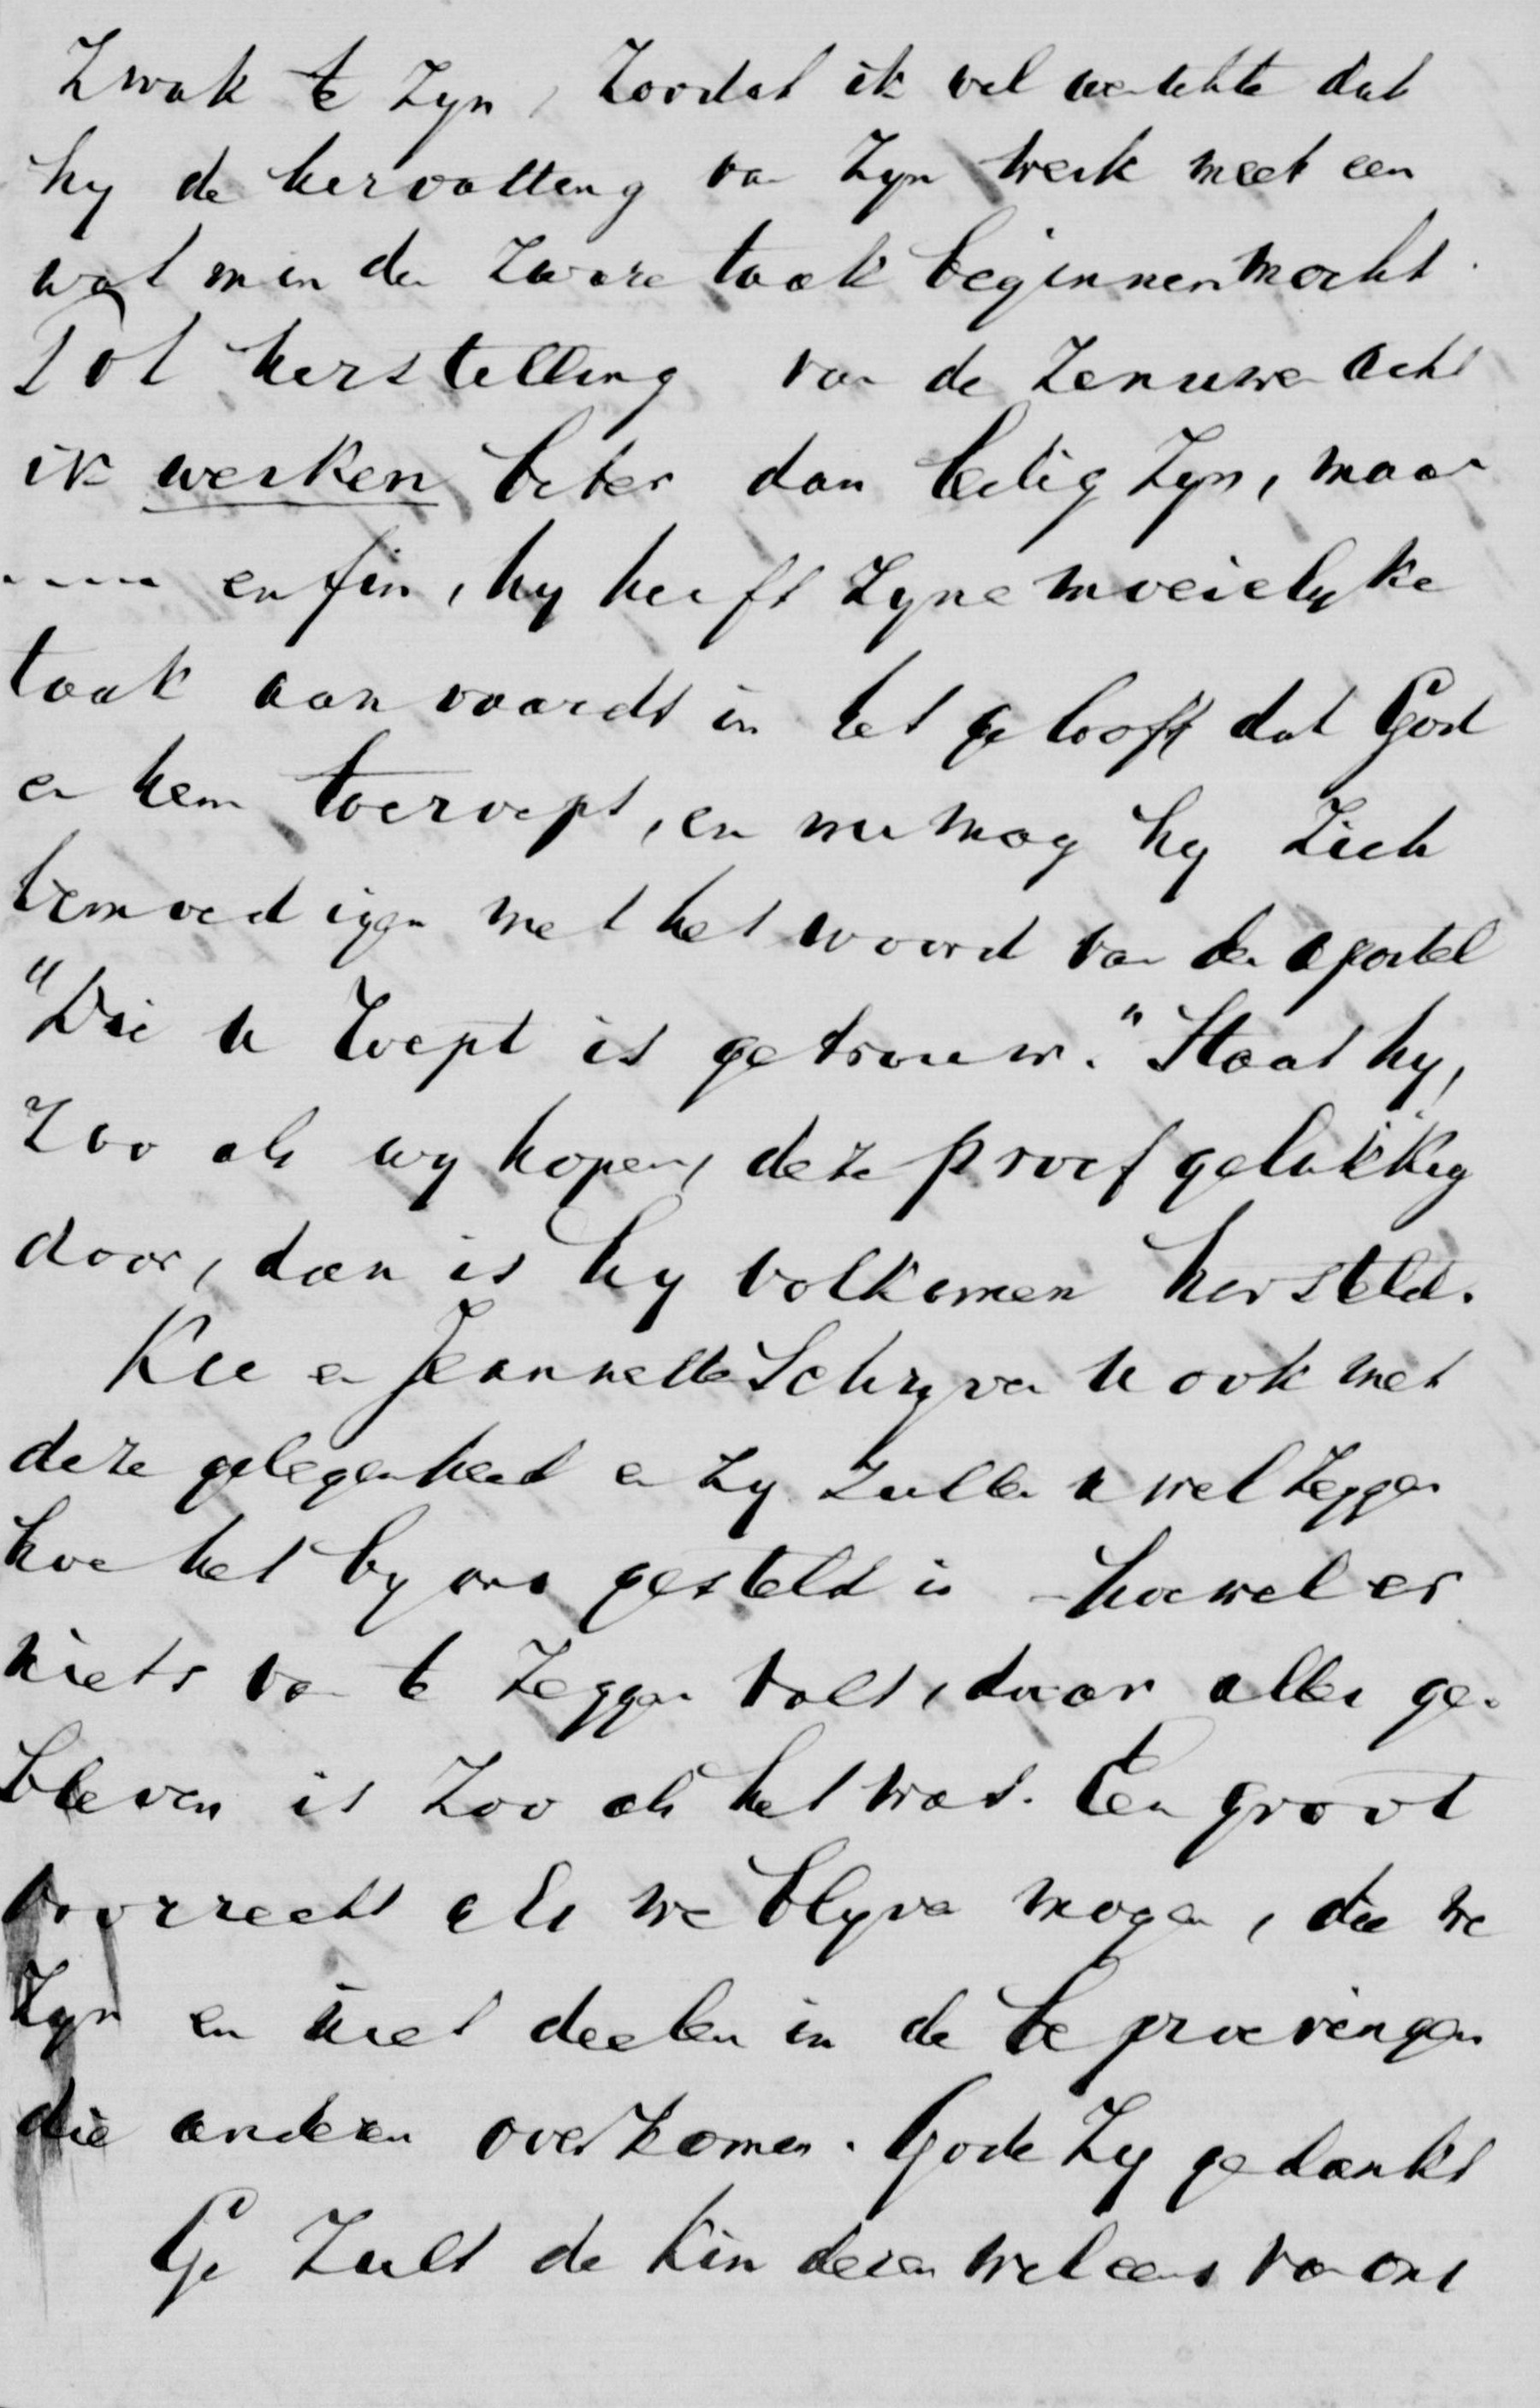 Zwak te Zyn, Zoodat ik wel wenschte dat
hy de hervatting van Zyn werk met een
wat minder Zware taak beginnen mocht.
Tot herstelling van de Zenuwen acht
ik werken beter dan ledig Zyn, maar
---- enfin, hy heeft Zyne moeielyke
taak aanvaardt in het geloof dat God
er hem toeroept, en nu mag hy Zich
bemoedigen met het woord van den apostel
"Die u roept is getrouw." Staat hy,
Zoo als wy hopen, deze proef gelukkig
door, dan is hy volkomen hersteld.
Kee en Jeannette Schryven u ook met
deze gelegenheid en Zy Zullen u wel Zeggen
hoe het by ons gesteld is - hoewel er
niets van te Zeggen valt, daar alles ge-
bleven is Zoo als het was. Een groot
voorrecht als we blyven mogen, die we
Zyn en niet deelen in de beproevingen
die anderen overkomen. Gode Zy gedankt
Ge Zult de Kinderen wel eens van ons